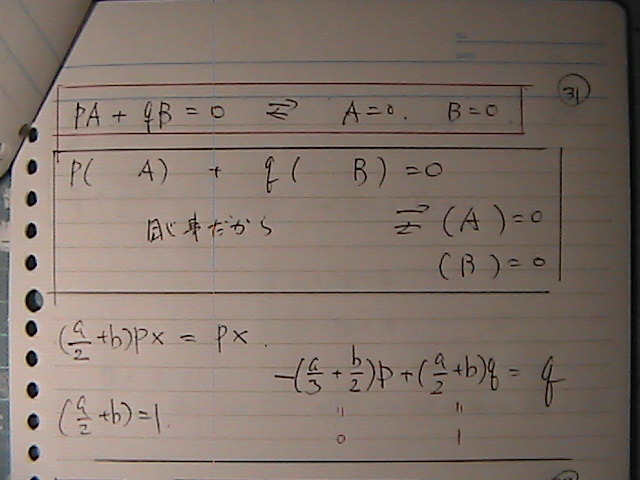 31
pA + qB = 0 ⇄ A=0. B=0.
p( A) + q( B) = 0
同じ事だから ⇄ (A)=0
(B)=0
(a/2 + b)px = px.
-(a/3 + b/2)p + (a/2 + b)q = q
(a/2 + b) = 1.
" "
0 1